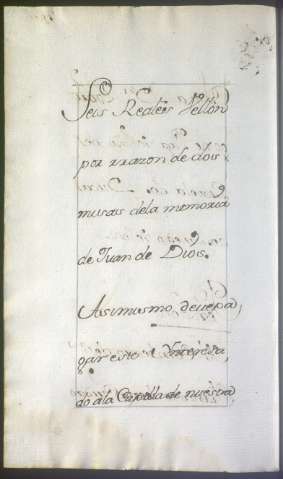 Seis Reales Vellon
por rrazon de dos
misas dela memoria
de Juan de Dios.
Asimismo, deve pa,
gar este Ynteresa,
do ala Capilla de nuestra